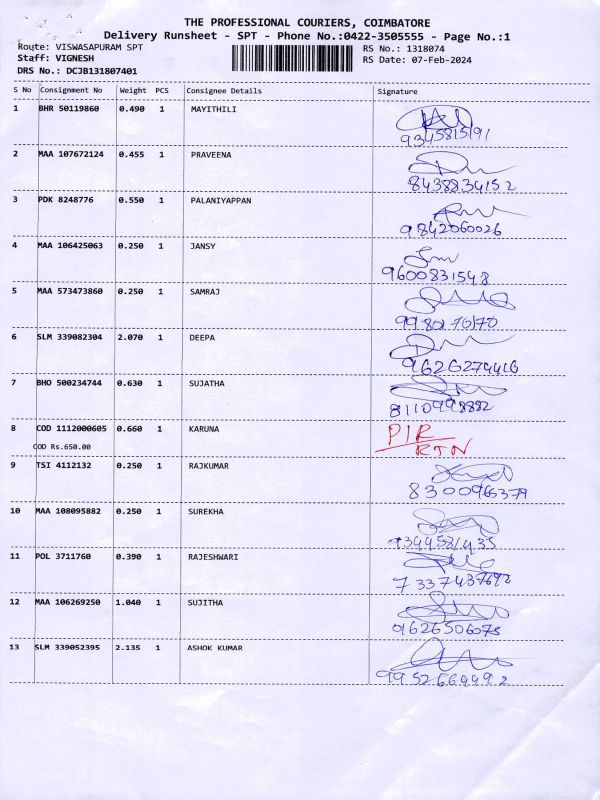 THE PROFESSIONAL COURIERS, COIMBATORE
Delivery Runsheet - SPT - Phone No.:0422-3505555 - Page No.:1
Route: VISWASAPURAM SPT RS No.: 1318074
Staff: VIGNESH RS Date: 07-Feb-2024
DRS No.: DCJB131807401
S No Consignment No Weight PCS Consignee Details Signature
1 BHR 50119860 0.490 1 MAYITHILI
9345815191
2 MAA 107672124 0.455 1 PRAVEENA
8438834152
3 PDK 8248776 0.550 1 PALANIYAPPAN
9842060026
4 MAA 106425063 0.250 1 JANSY
9600831548
5 MAA 573473860 0.250 1 SAMRAJ
6 SLM 339082304 2.070 1 DEEPA
9626279416
7 BHO 500234744 0.630 1 SUJATHA
8110998882
8 COD 1112000605 0.660 1 KARUNA PIR
COD Rs.650.00 RTN
9 TSI 4112132 0.250 1 RAJKUMAR
8300965379
10 MAA 108095882 0.250 1 SUREKHA
9344581435
11 POL 3711760 0.390 1 RAJESHWARI
7337437692
12 MAA 106269250 1.040 1 SUJITHA
9626506075
13 SLM 339052395 2.135 1 ASHOK KUMAR
9952664992